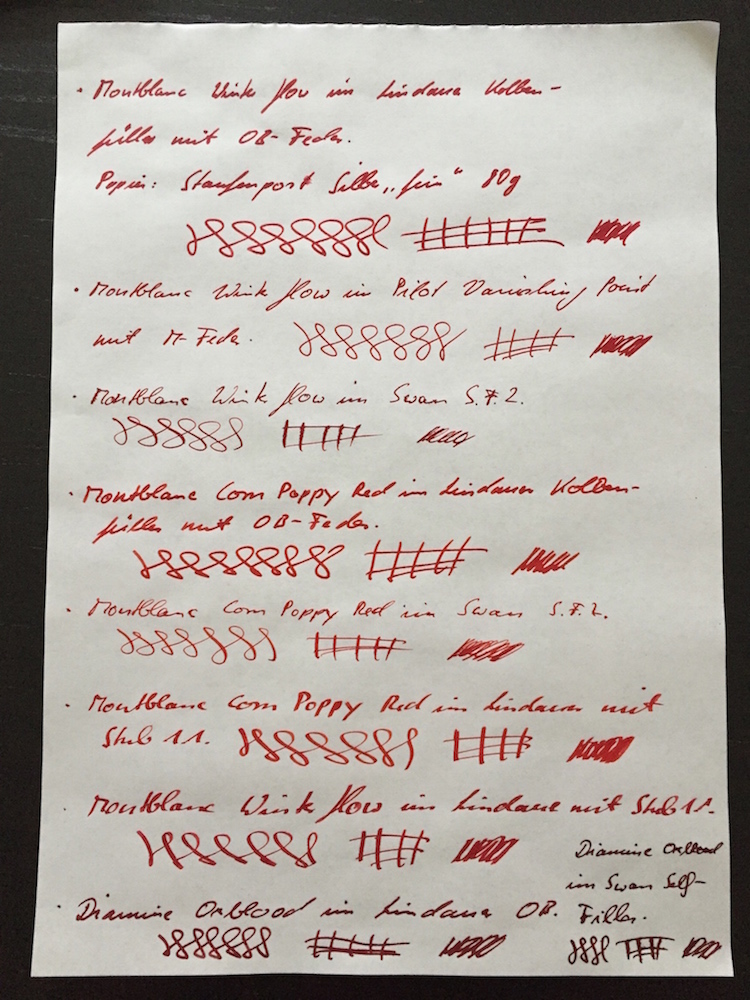 · Montblanc Wink flow im Lindauer Kolben-
füller mit OB-Feder.
Papier: Staufenpost Silber „fein“ 80g
· Montblanc Wink flow im Pilot Vanishing Point
mit M-Feder.
· Montblanc Wink flow im Swan S.F.2.
· Montblanc Corn Poppy Red im Lindauer Kolben-
füller mit OB-Feder.
· Montblanc Corn Poppy Red im Swan S.F.2.
· Montblanc Corn Poppy Red im Lindauer mit
Stub 1.1.
· Montblanc Wink flow im Lindauer mit Stub 1.1.
· Diamine Oxblood im Lindauer OB.
Diamine Oxblood
im Swan Self-
Filler.